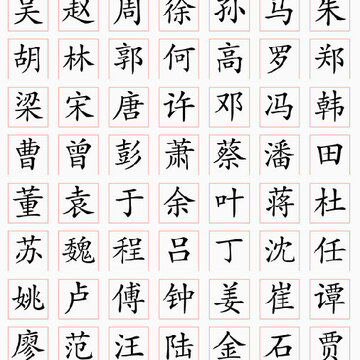 吴 赵 周 徐 孙 马 朱
胡 林 郭 何 高 罗 郑
梁 宋 唐 许 邓 冯 韩
曹 曾 彭 萧 蔡 潘 田
董 袁 于 余 叶 蒋 杜
苏 魏 程 吕 丁 沈 任
姚 卢 傅 钟 姜 崔 谭
廖 范 汪 陆 金 石 贾